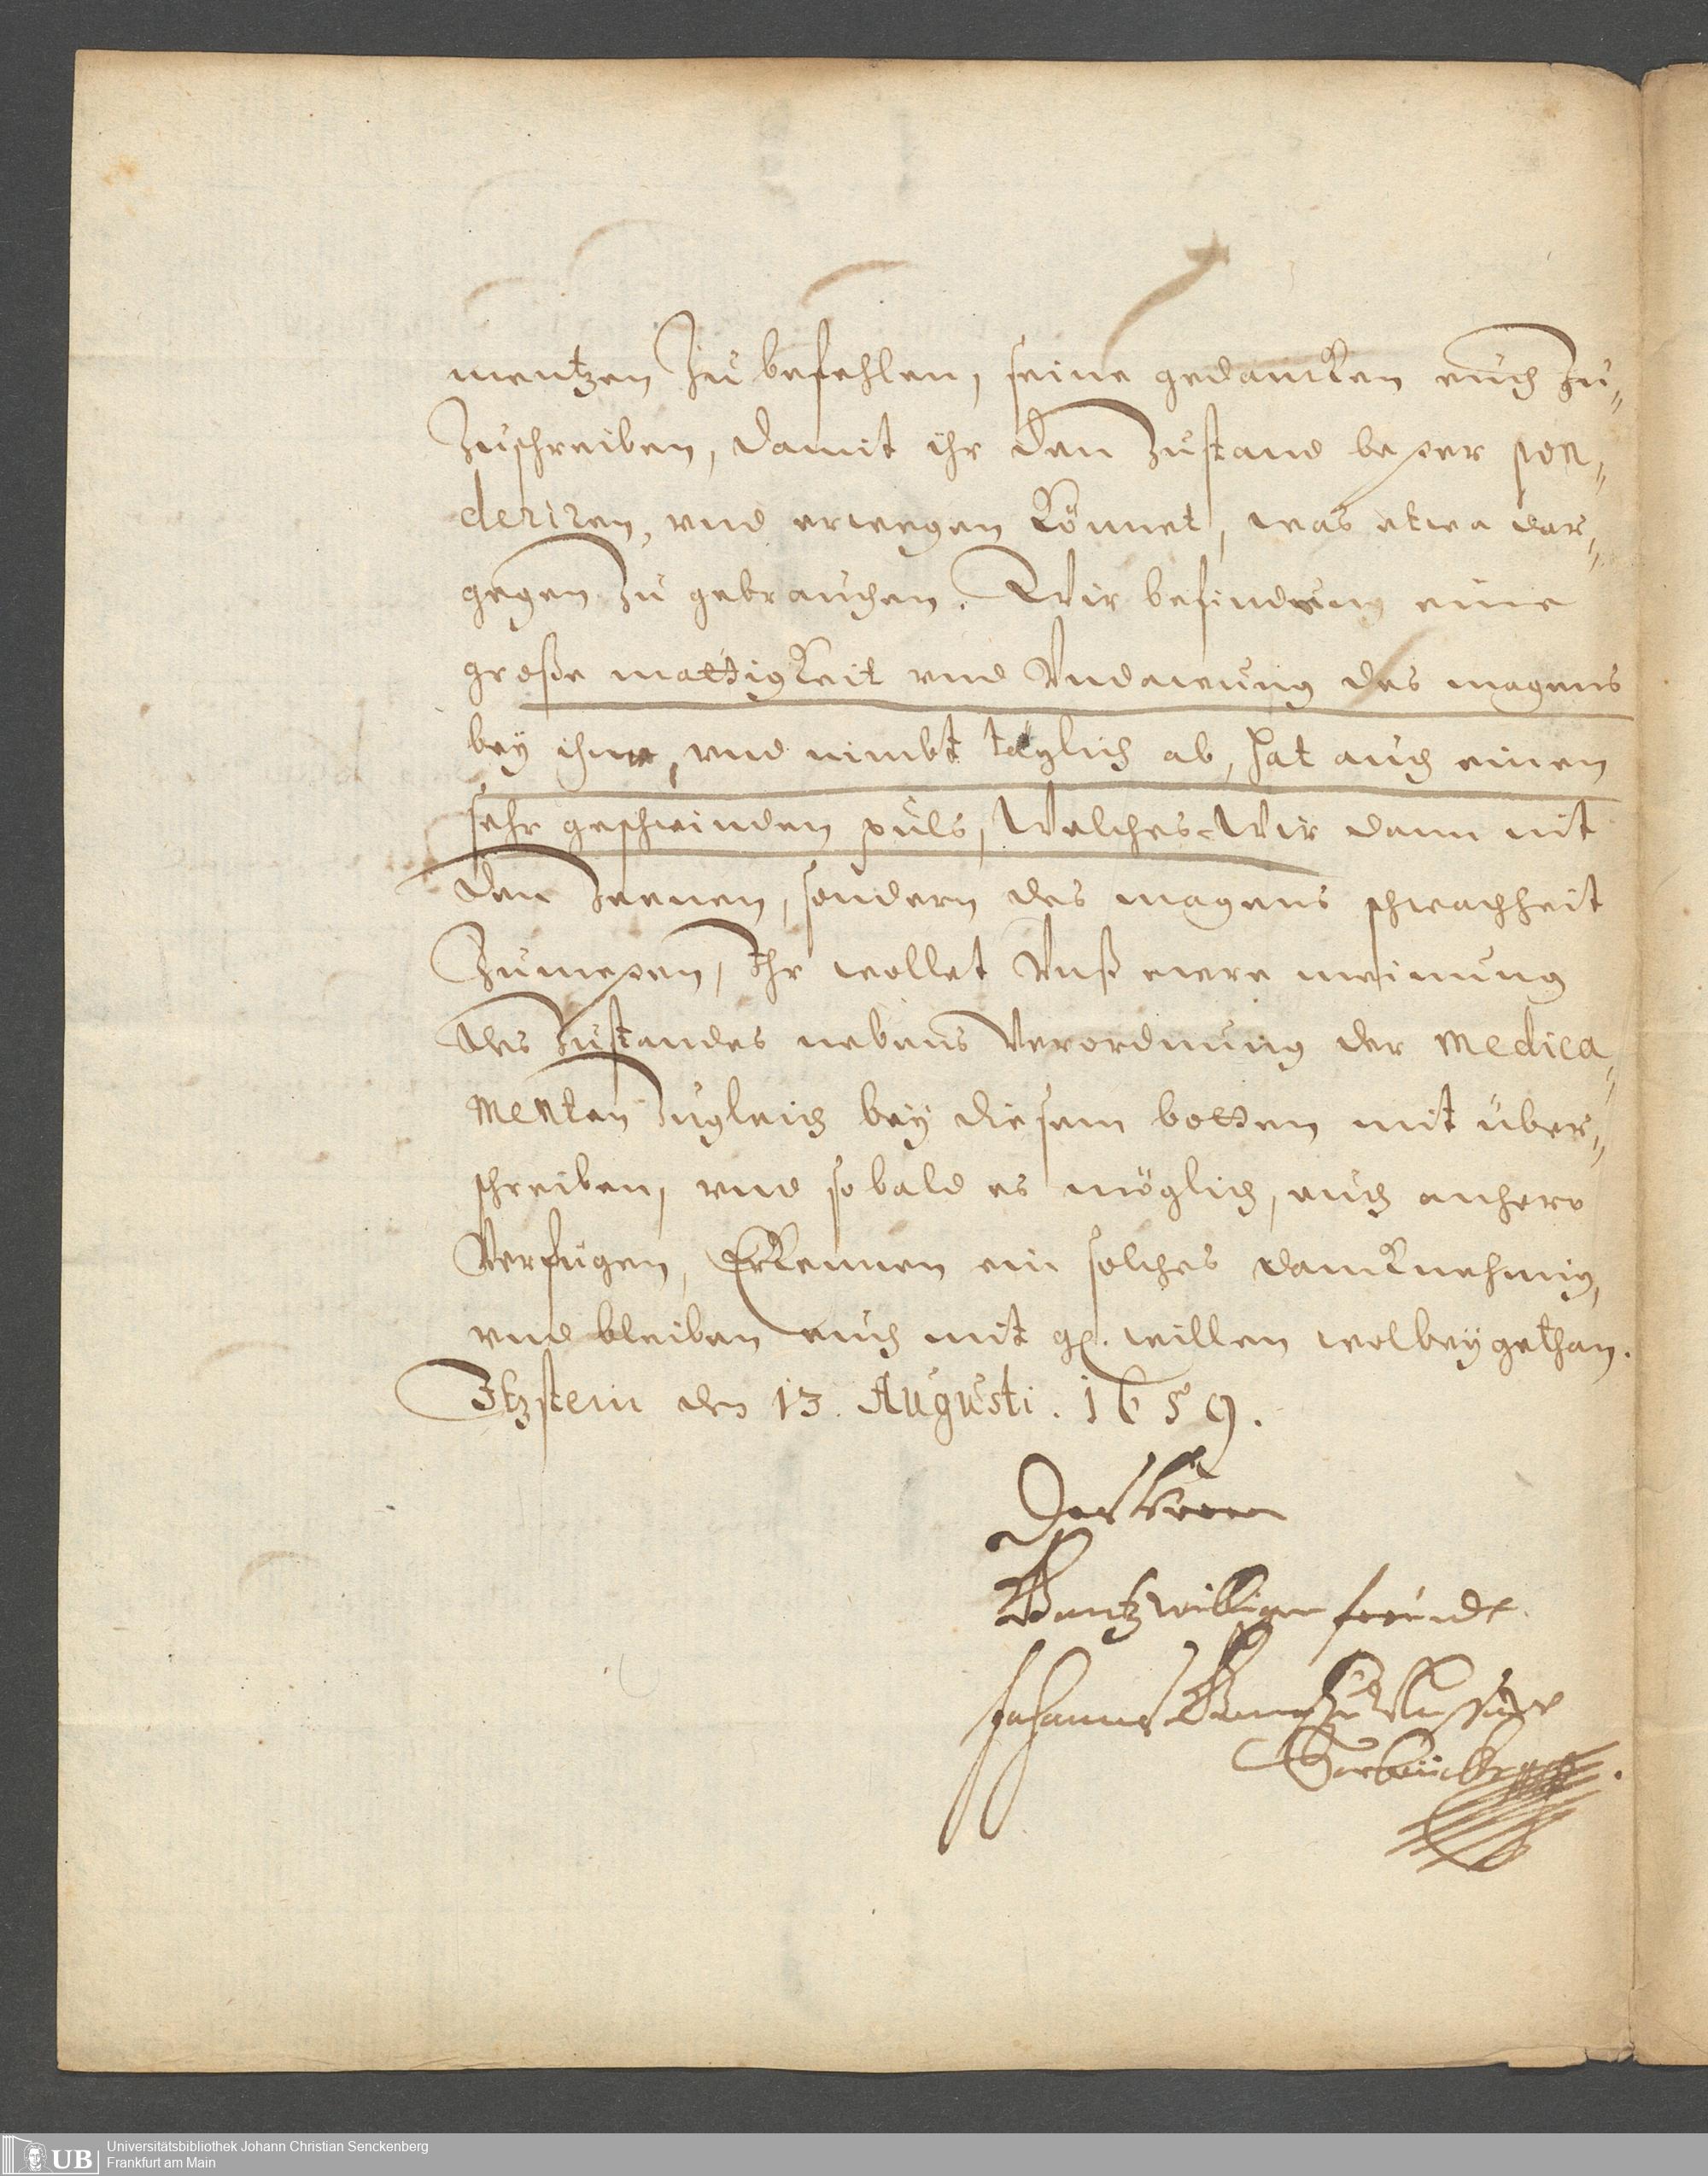 mentzen zu befehlen, seine gedancken euch zu„
zuschreiben, damit ihr den zustand beßer pon„
deriren, vnd erwegen könnet, was etwa dar„
gegen zu gebrauchen. Wir befinden eine
große mattigkeit vnd Vndewung des magens
bey ihme, vnd nimbt täglich ab, hat auch einen
sehr geschwinden puls, Welches Wir dann nit
den zeenen, sondern des magens schwachheit
zumeßen, Ihr wollet Vnß ewre meinung
des zustandes nebens Verordnung der medica„
menten zugleich bey diesem botten mit über„
schreiben, vnd so bald es möglich, euch anhero
Verfügen, Erkennen ein solches dancknehmig,
vnd bleiben euch mit g. willen wolbeygethan.
Itzstein den 13. Augusti. 1659.
Des herren
Gantzwilliger freundt
Johannes Graue zu Nassaw
Sarbrücken.
UB Universitätsbibliothek Johann Christian Senckenberg
Frankfurt am Main